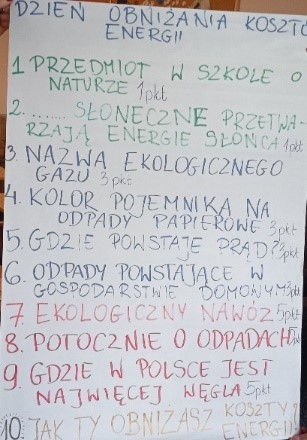 DZIEŃ OBNIŻANIA KOSZTÓ
ENERGII
1 PRZEDMIOT W SZKOLE O
NATURZE 1pkt
2........ SŁONECZNE PRZETWA-
RZAJĄ ENERGIE SŁOŃCA 1pkt
3. NAZWA EKOLOGICZNEGO
GAZU 3pkt
4. KOLOR POJEMNIKA NA
ODPADY PAPIEROWE 3pkt
5. GDZIE POWSTAJE PRĄD? 3pkt
6. ODPADY POWSTAJĄCE W
GOSPODARSTWIE DOMOWYM 3pkt
7. EKOLOGICZNY NAWÓZ 5pkt
8. POTOCZNIE O ODPADACH
9. GDZIE W POLSCE JEST
NAJWIĘCEJ WĘGLA 5pkt
10. JAK TY OBNIŻASZ KOSZTY
ENERGII